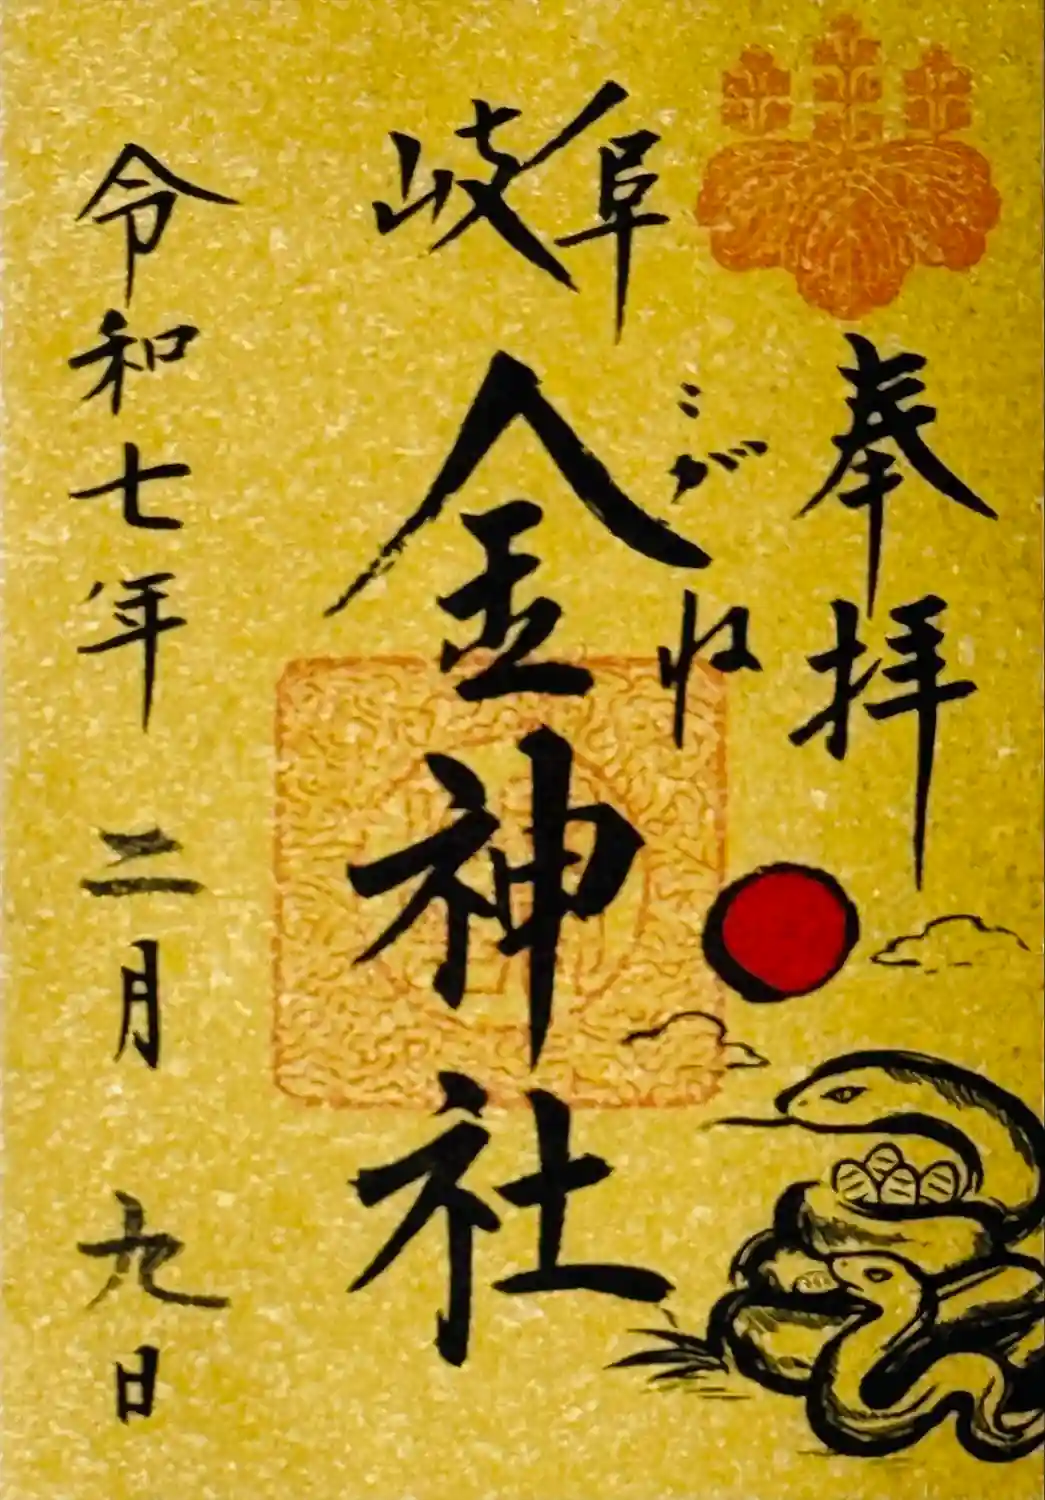 奉拝
岐阜
こがね
金神社
令和七年二月九日